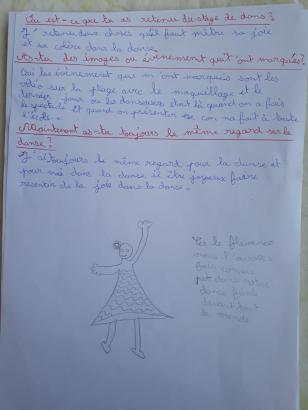 Qu'est-ce que tu as retenu du stage de dans?
J'ai retenu deux choses qu'il faut mêttre sa joie
et sa colère dans la danse.
As-tu des images ou évènement qui t'ont marqués?
Oui les évènement qui m'ont marqués sont les
vidéo sur la plage avec le maquillage et le
dernier jour ou les danseuses étai là quand on a fais
le spectacle. Et quand on présenter se con na fait à toute
l'école.
Maintenant as-tu toujours le même regard sur la
danse?
J'ai toujours le même regard pour la danse et
pour moi dans la danse il être joyeux faire
resentir de la joie dans la danse.
le flamenco
nous l'avons
fais comme
dans notre
danse
devant tout
le monde